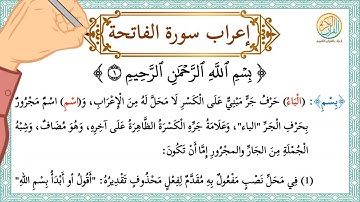 إعراب سورة الفاتحة
﴿ بِسْمِ ٱللَّهِ ٱلرَّحْمَٰنِ ٱلرَّحِيمِ ١ ﴾
﴿بِسْمِ﴾: (الْبَاءُ) حَرْفُ جَرٍّ مَبْنِيٌّ عَلَى الْكَسْرِ لَا مَحَلَّ لَهُ مِنَ الْإِعْرَابِ، وَ(اسْمِ) اسْمٌ مَجْرُورٌ
بِحَرْفِ الْجَرِّ "الباء"، وَعَلَامَةُ جَرِّهِ الْكَسْرَةُ الظَّاهِرَةُ عَلَى آخِرِهِ، وَهُوَ مُضَافٌ، وَشِبْهُ
الْجُمْلَةِ مِنَ الجَارِّ والمجْرُورِ إِمَّا أَنْ تَكُونَ:
(1) فِي مَحَلِّ نَصْبٍ مَفْعُولٌ بِهِ مُقَدَّمٌ لِفِعْلٍ مَحْذُوفٍ تَقْدِيرُهُ: "أَقُولُ أو أَبْدَأُ بِسْمِ اللهِ"